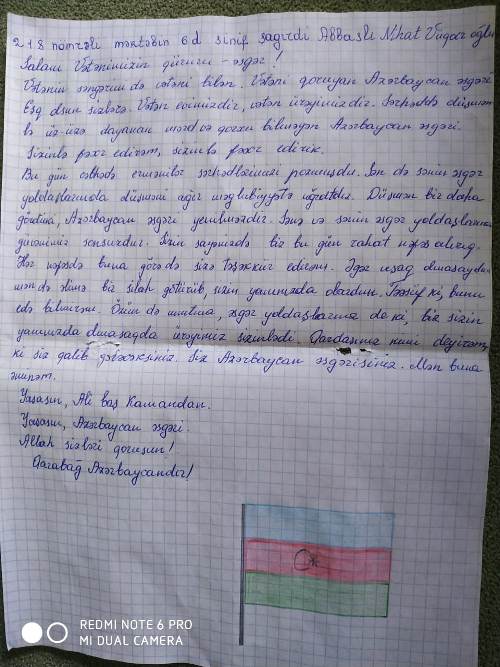 218 nömrəli məktəbin 6d sinif şagirdi Abbaslı Nihat Vüqar oğlu
Salam Vətənimizin qürüru - əsgər!
Vətənin səngərində vətəni bilən. Vətəni qoruyan Azərbaycan əsgəri
Eşq olsun sizlərə. Vətən evimizdir, vətən ürəyimizdir. Sərhəddə düşmən
lə üz-üzə dayanan mərd və qorxu bilməyən Azərbaycan əsgəri.
Sizinlə fəxr edirəm, sizinlə fəxr edirik.
Bu gün cəbhədə ermənilər sərhədlərimizi pozmuşdu. Sən də sənin əsgər
yoldaşlarında düşməni ağır məğlubiyyətə uğratdız. Düşmən bir daha
gördüki, Azərbaycan əsgəri yenilməzdir. Sənə və sənin əsgər yoldaşlarına
güvənimiz sonsuzdur. Sizin sayənizdə biz bu gün rahat nəfəs alırıq.
Hər nəfəsdə buna görədə sizə təşəkkür edirəm. Əgər uşaq olmasaydım
məndə əlimə bir silah götürüb, sizin yanınızda olardım. Təəsif ki, bunu
edə bilmirəm. Özün də unutma, əsgər yoldaşlarına de ki, biz sizin
yanınızda olmasaqda ürəyimiz sizinlədi. Qardaşınız kimi deyirəm,
ki siz qalib gələcəksiniz. Siz Azərbaycan əsgərisiniz. Mən buna
əminəm.
Yaşasın, Ali baş Kamandan.
Yaşasın, Azərbaycan əsgəri.
Allah sizləri qorusun!
Qarabağ Azərbaycandır!
REDMI NOTE 6 PRO
MI DUAL CAMERA